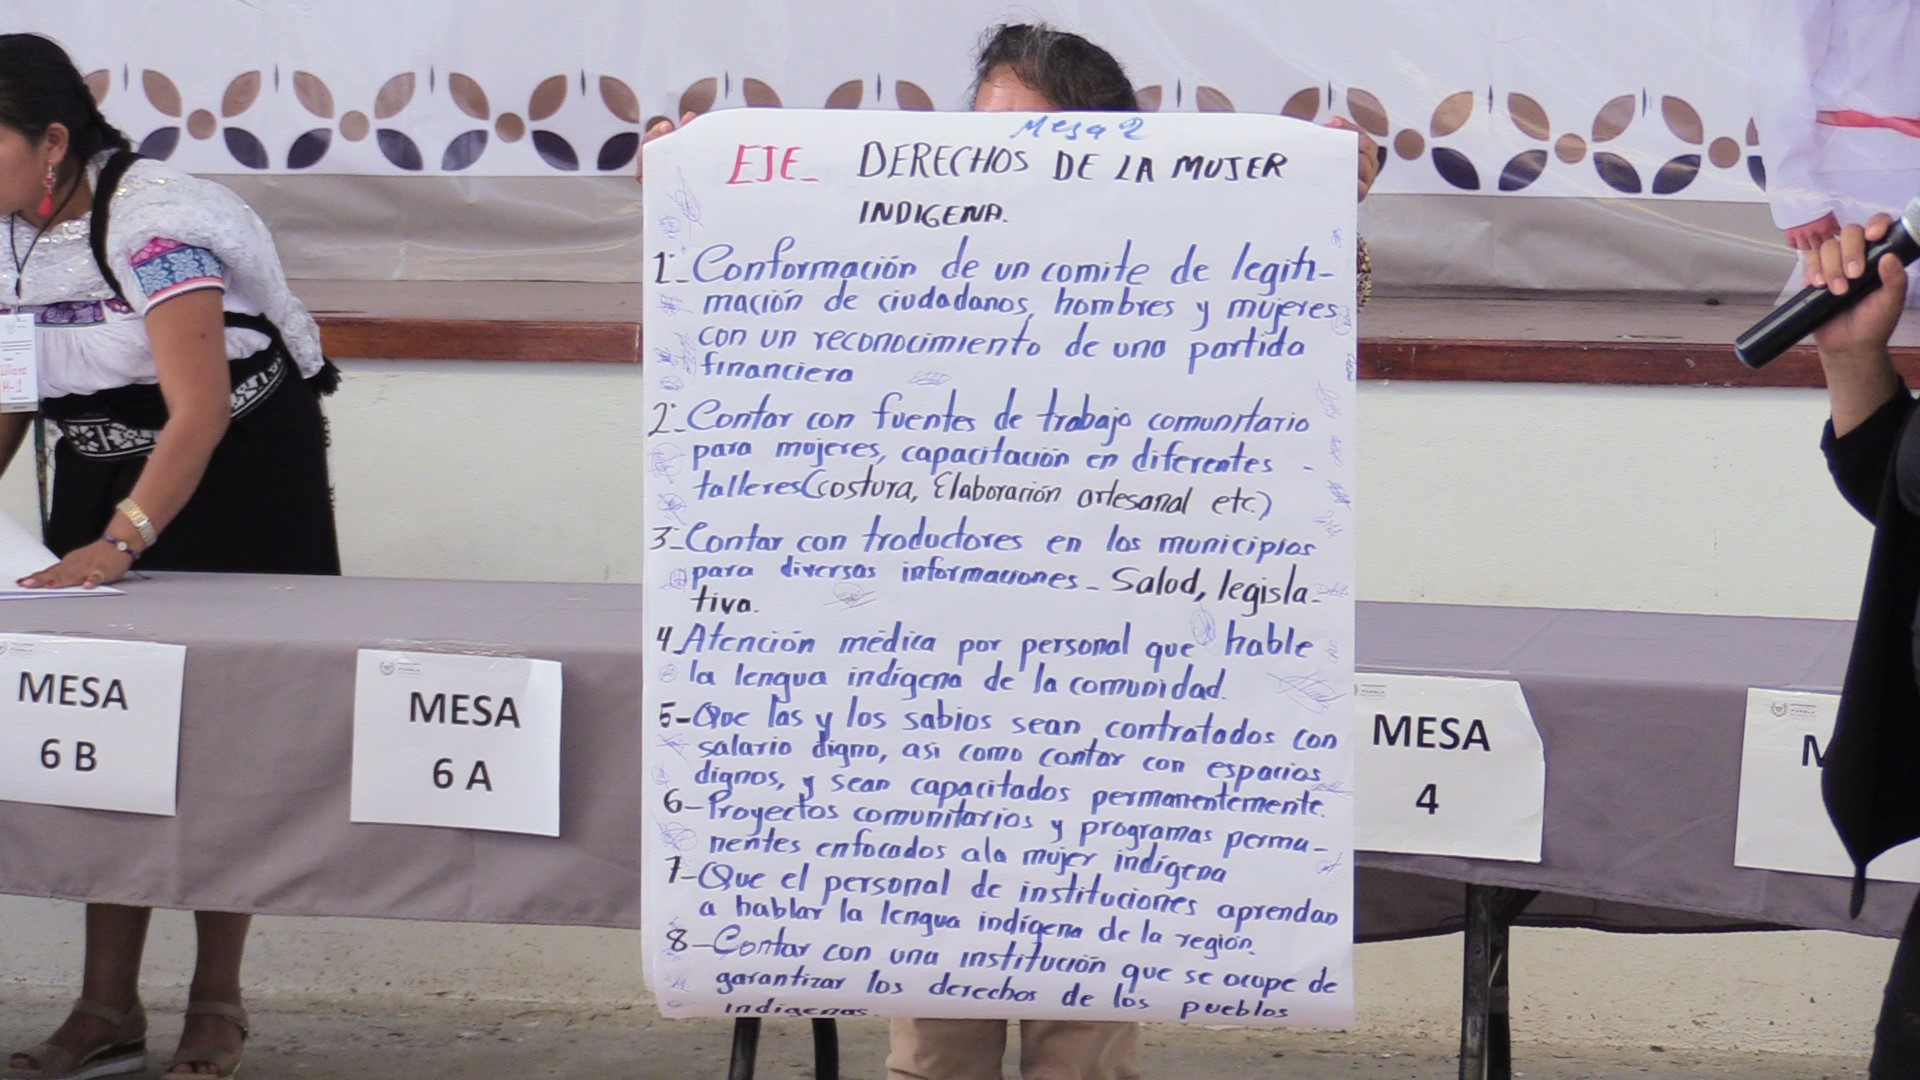 Mesa 2
EJE_ DERECHOS DE LA MUJER
INDIGENA.
1._ Conformación de un comite de legiti-
mación de ciudadanos, hombres y mujeres
con un reconocimiento de una partida
financiera
2._ Contar con fuentes de trabajo comunitario
para mujeres, capacitación en diferentes -
talleres(costura, Elaboración artesanal etc.)
3._ Contar con traductores en los municipios
para diversas informaciones_ Salud, legisla-
tiva.
4_Atención médica por personal que hable
la lengua indígena de la comunidad.
5-Que las y los sabios sean contratados con
salario digno, asi como contar con espacios
dignos, y sean capacitados permanentemente.
6-Proyectos comunitarios y programas perma-
nentes enfocados ala mujer indígena
7-Que el personal de instituciones aprendan
a hablar la lengua indígena de la región.
8-Contar con una institución que se ocupe de
garantizar los derechos de los pueblos
indigenas.
Liliana
M-1
MESA
6 B
MESA
6 A
MESA
4
M